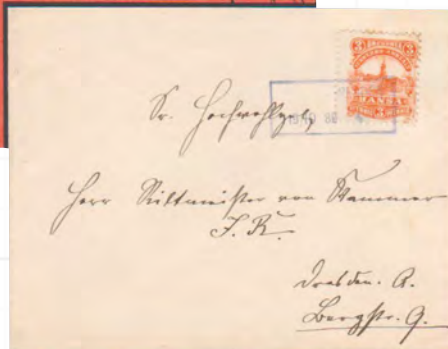 3 3
HANSA
Sr. Hochwohlgeb.
Herr Rittmeister von Stammer
J. R.
Dresden. A.
Bergstr. 9.